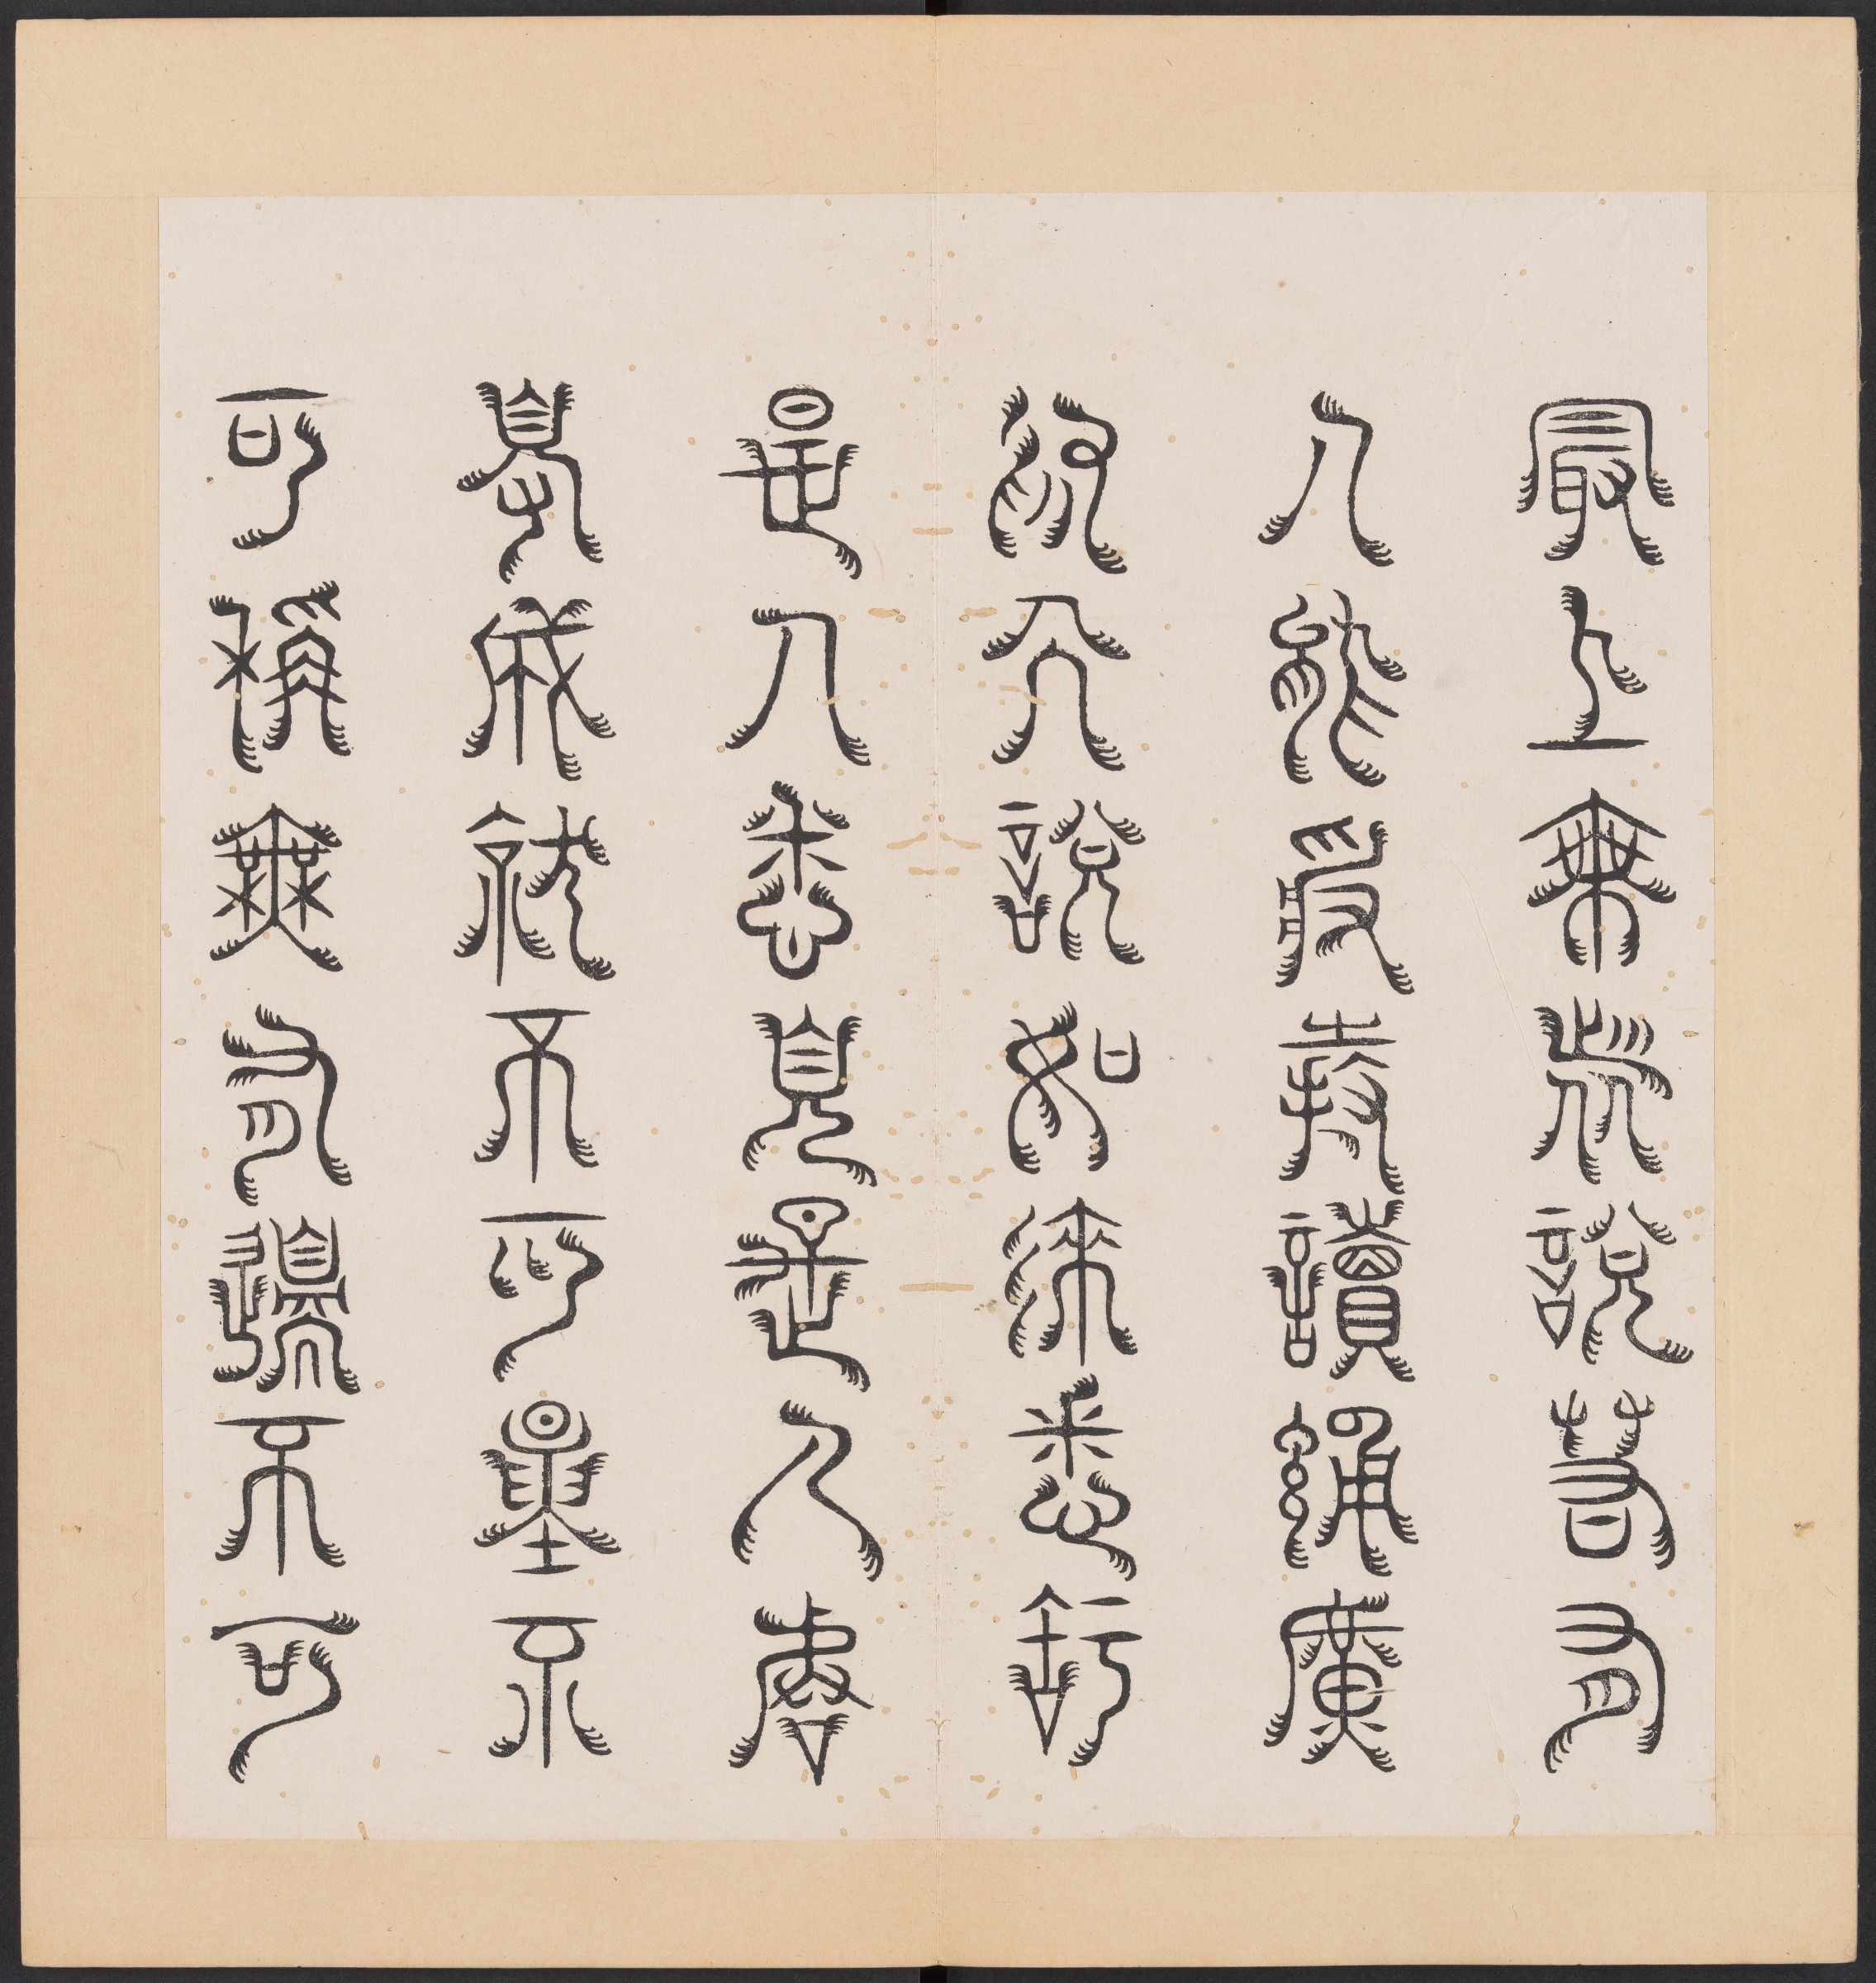 最上乘者說若有
人能受持讀誦廣
為人說如來悉知
是人悉見是人皆
得成就不可量不
可稱無有邊不可